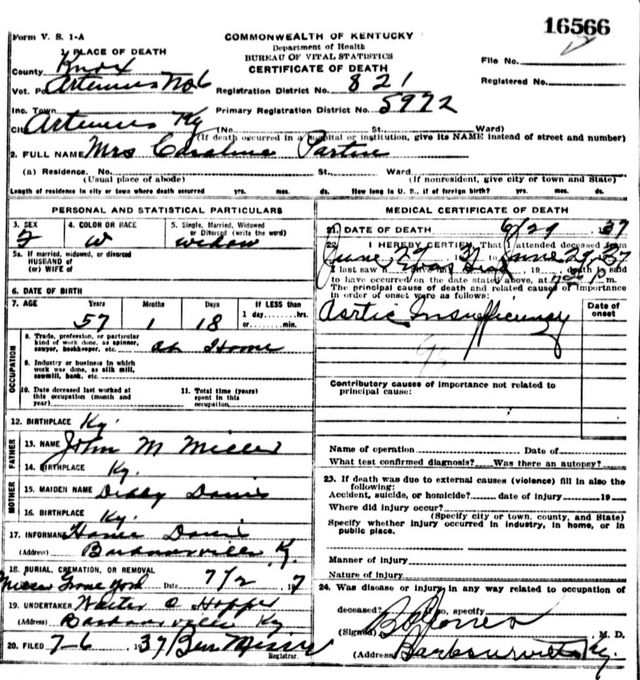 16566
Form V. S. 1-A
COMMONWEALTH OF KENTUCKY
Department of Health
BUREAU OF VITAL STATISTICS
CERTIFICATE OF DEATH
File No.
Registered No.
1 PLACE OF DEATH
County Knox
Vot. P Artemus No 6 Registration District No. 821
Inc. Town Primary Registration District No. 5972
City Artemus Ky (No. St. Ward)
(If death occurred in a hospital or institution, give its NAME instead of street and number)
2. FULL NAME Mrs Caroline Partin
(a) Residence. No. St., Ward.
(Usual place of abode) (If nonresident, give city or town and State)
Length of residence in city or town where death occurred yrs. mos. ds. How long in U. S., if of foreign birth? yrs. mos. ds.
PERSONAL AND STATISTICAL PARTICULARS
3. SEX 4. COLOR OR RACE 5. Single, Married, Widowed or Divorced (write the word)
F W widow
5a. If married, widowed, or divorced
HUSBAND of
(or) WIFE of
6. DATE OF BIRTH
7. AGE Years Months Days If LESS than
1 day hrs.
or min.
57 1 18
OCCUPATION
8. Trade, profession, or particular
kind of work done, as spinner,
sawyer, bookkeeper, etc. at Home
9. Industry or business in which
work was done, as silk mill,
sawmill, bank, etc.
10. Date deceased last worked at
this occupation (month and
year)
11. Total time (years)
spent in this
occupation
12. BIRTHPLACE Ky.
FATHER
13. NAME John M Miller
14. BIRTHPLACE Ky.
MOTHER
15. MAIDEN NAME Debby Davis
16. BIRTHPLACE Ky.
17. INFORMANT Davis
(Address) Barbourville Ky.
18. BURIAL, CREMATION, OR REMOVAL
Grove Yard Date 7/2 19 7
19. UNDERTAKER Walter C Hopper
(Address) Barbourville Ky
20. FILED 7-6 1937 Ben
Registrar.
MEDICAL CERTIFICATE OF DEATH
21. DATE OF DEATH 6/29 1937
22. I HEREBY CERTIFY, That I attended deceased from
June 27 1937 June 29, 37
I last saw h was dead 19 death is said
to have occurred on the date stated above, at m.
The principal cause of death and related causes of importance
in order of onset were as follows:
Date of
onset
Aortic Insufficiency
95
Contributory causes of importance not related to
principal cause:
Name of operation Date of
What test confirmed diagnosis? Was there an autopsy?
23. If death was due to external causes (violence) fill in also the
following:
Accident, suicide, or homicide? date of injury 19
Where did injury occur?
(Specify city or town, county, and State)
Specify whether injury occurred in industry, in home, or in
public place.
Manner of injury
Nature of injury
24. Was disease or injury in any way related to occupation of
deceased? If so, specify
(Signed) Jones M. D.
(Address) Barbourville Ky.